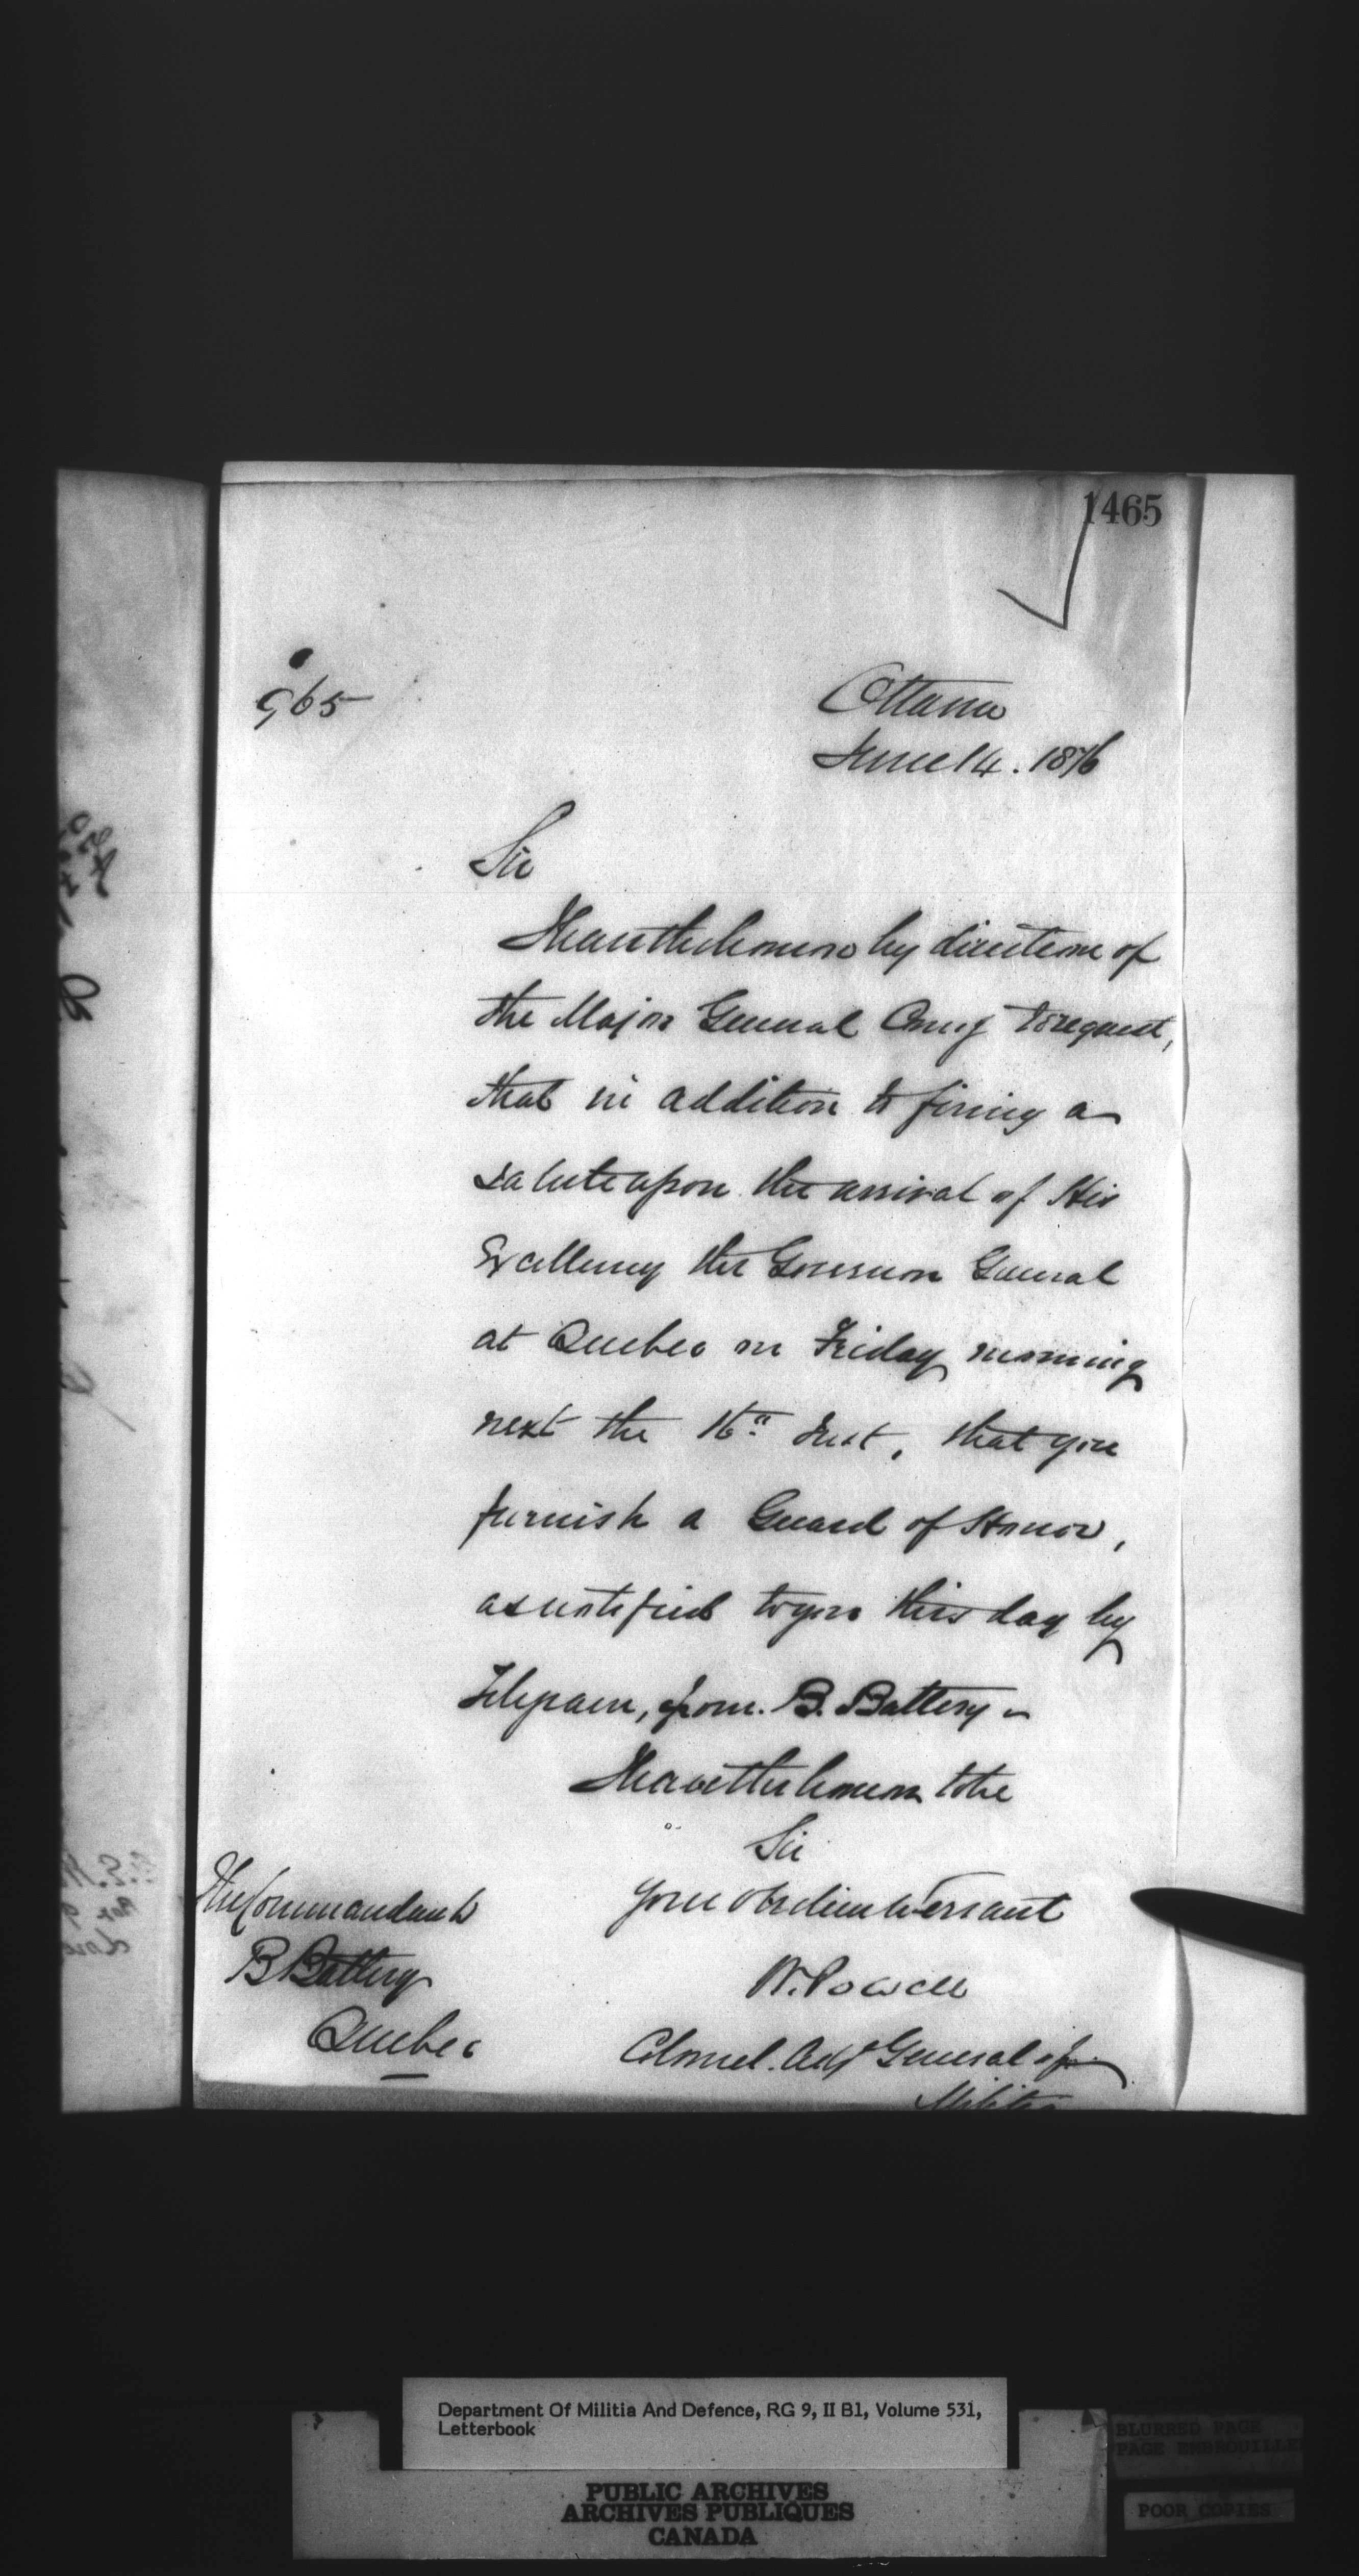 1465
965
Ottawa
June 14. 1876
Sir
I have the honor by direction of
the Major General Comg to request,
that in addition to firing a
salute upon the arrival of His
Excellency the Governor General
at Quebec on Friday morning
next the 16th Inst, that you
furnish a Guard of Honor,
as notified to you this day by
Telegram, from B. Battery
I have the honor to be
Sir
Your Obedient Servant
W. Powell
Colonel. Adjt General of
Militia
The Commandant
B Battery
Quebec
Department Of Militia And Defence, RG 9, II B1, Volume 531,
Letterbook
PUBLIC ARCHIVES
ARCHIVES PUBLIQUES
CANADA
BLURRED PAGE
PAGE EMBROUILLEE
POOR COPIES